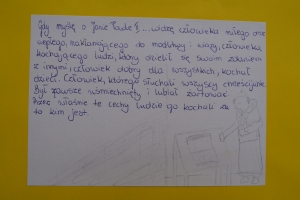 Gdy myślę o Janie Pawle II, ... widzę człowieka miłego oraz
ciepłego, nakłaniającego do modlitwy i wiary, człowieka
kochającego ludzi, który dzielił się swoim zdaniem
z innymi, człowiek dobry dla wszystkich, kochał
dzieci. Człowiek, którego słuchali wszyscy chrześcijanie.
Był zawsze uśmiechnięty i lubiał żartować
właśnie te cechy ludzie go kochali za
to kim jest